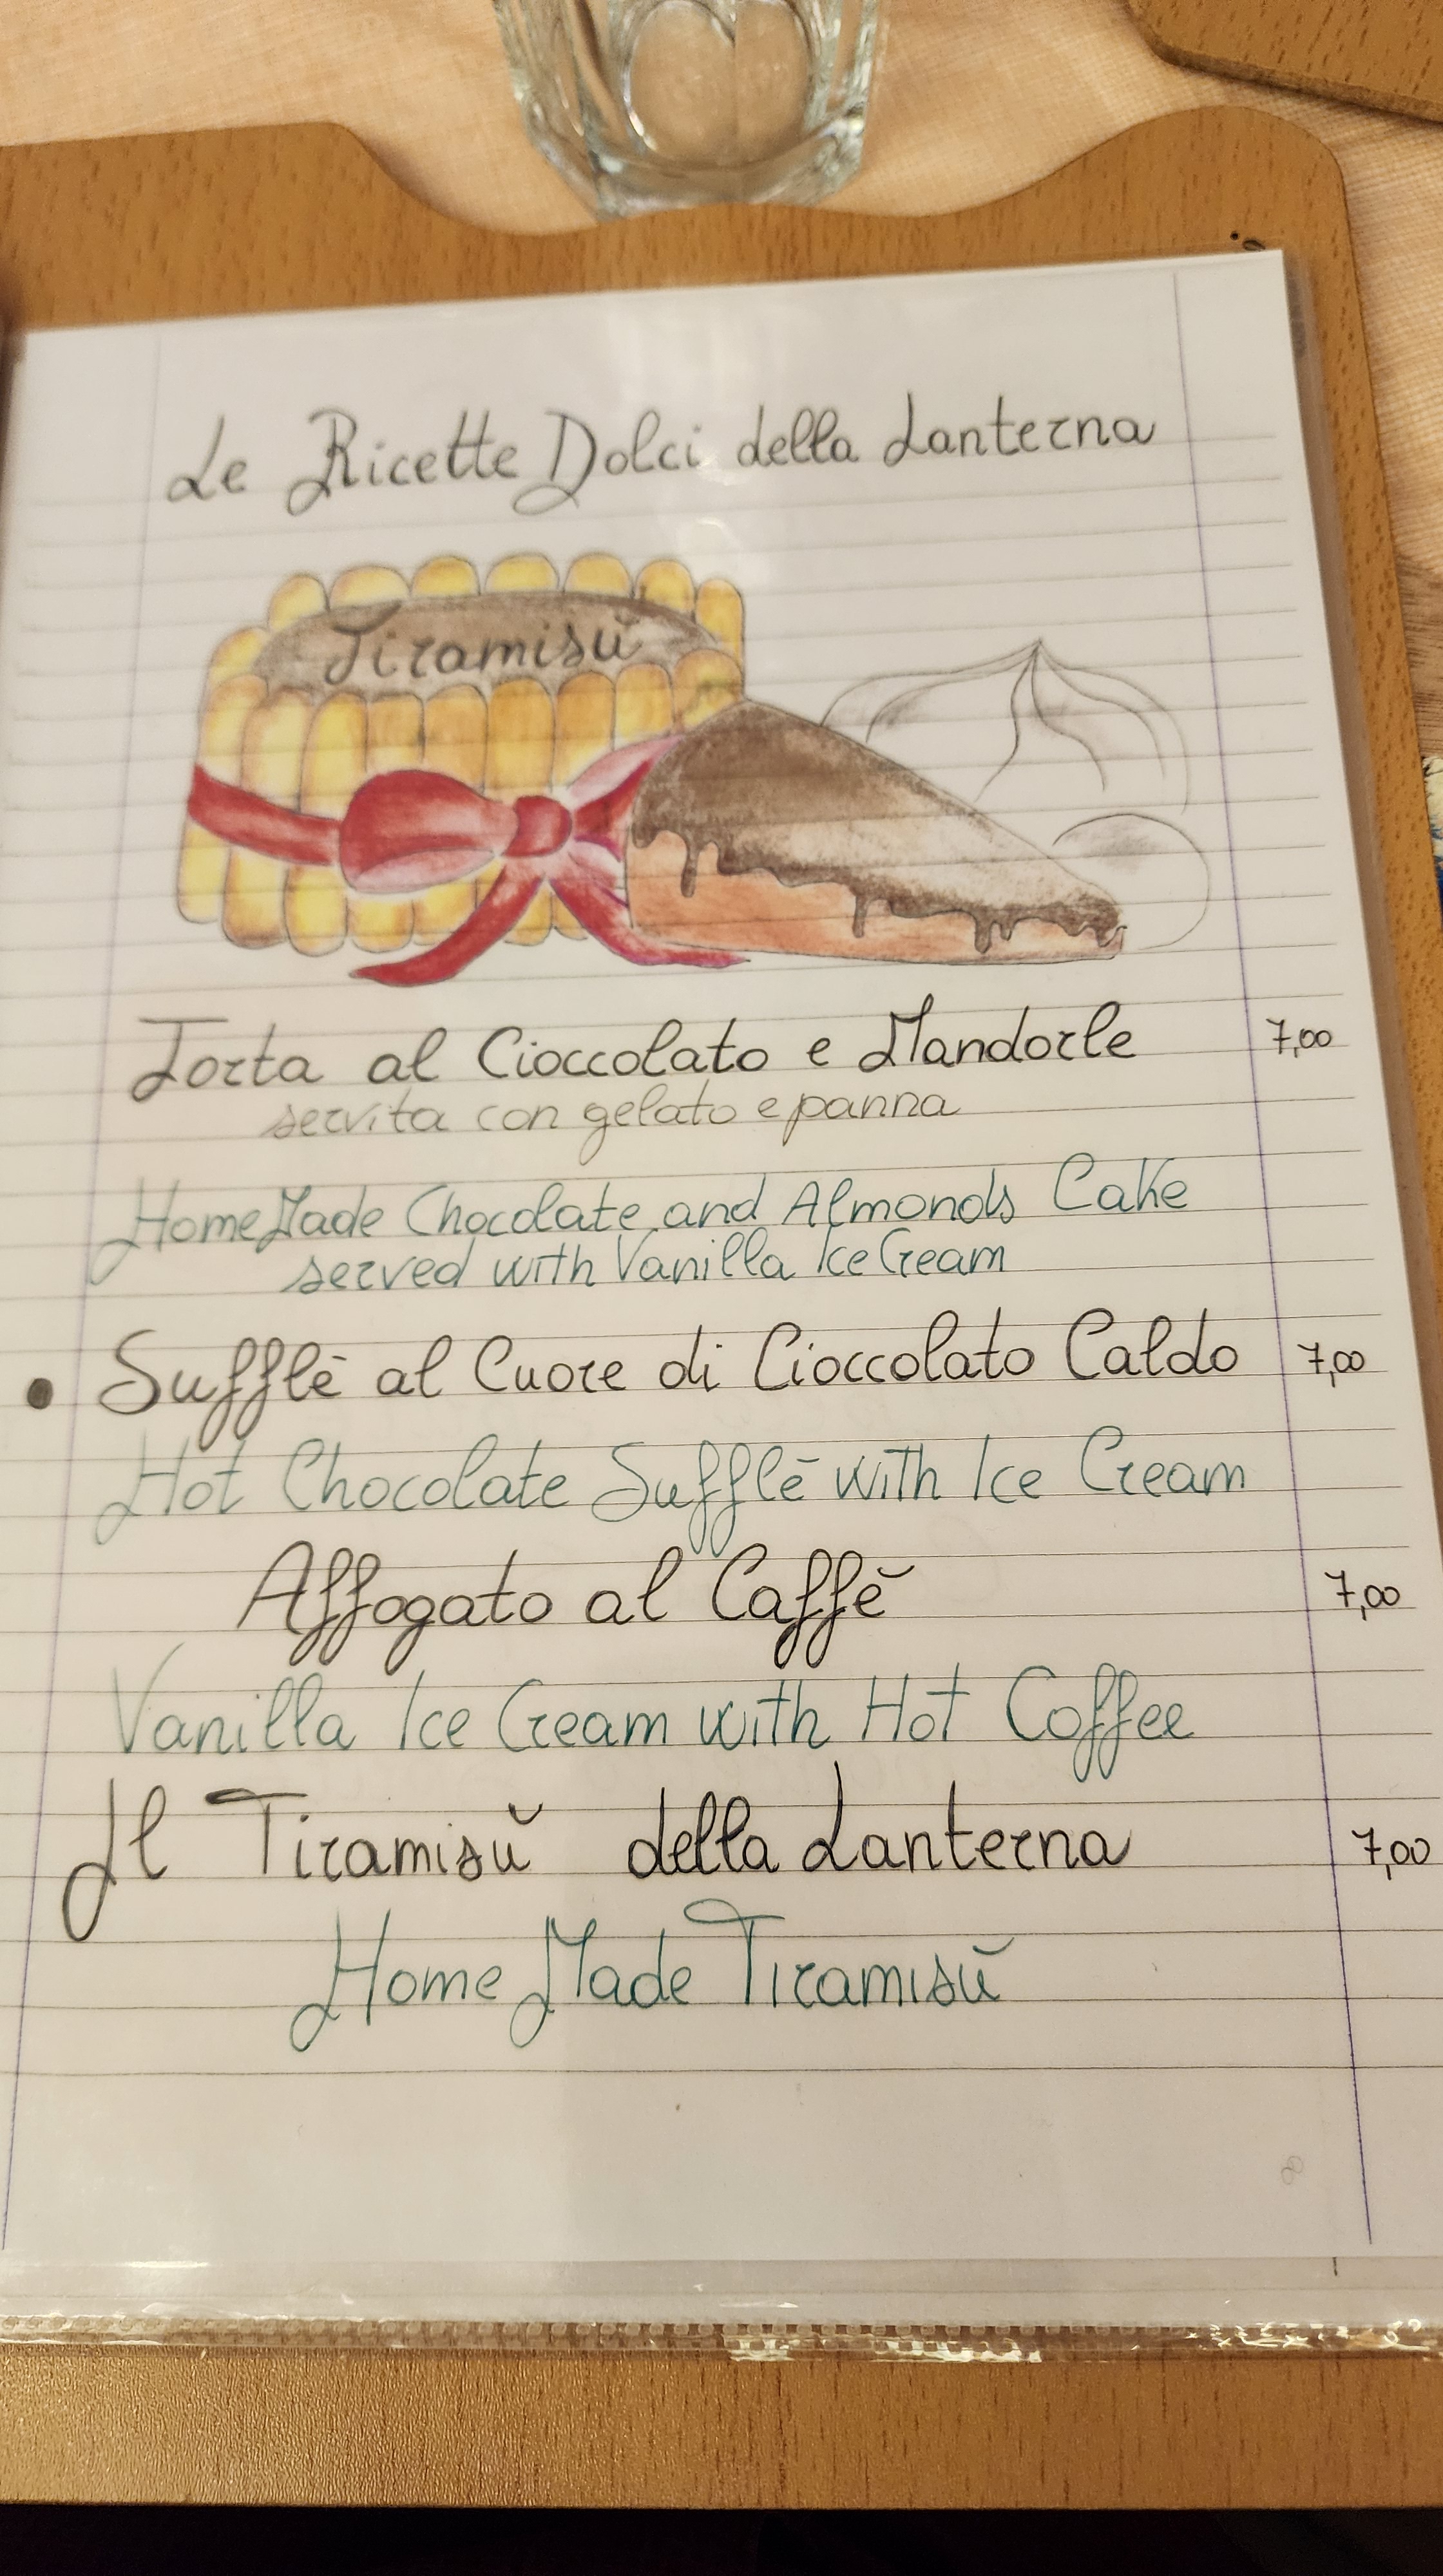 Le Ricette Dolci della Lanterna
Tiramisù
Torta al Cioccolato e Mandorle 7,00
servita con gelato e panna
Home Made Chocolate and Almonds Cake
served with Vanilla Ice Cream
• Sufflè al Cuore di Cioccolato Caldo 7,00
Hot Chocolate Sufflè with Ice Cream
Affogato al Caffè 7,00
Vanilla Ice Cream with Hot Coffee
Il Tiramisù della Lanterna 7,00
Home Made Tiramisù
8